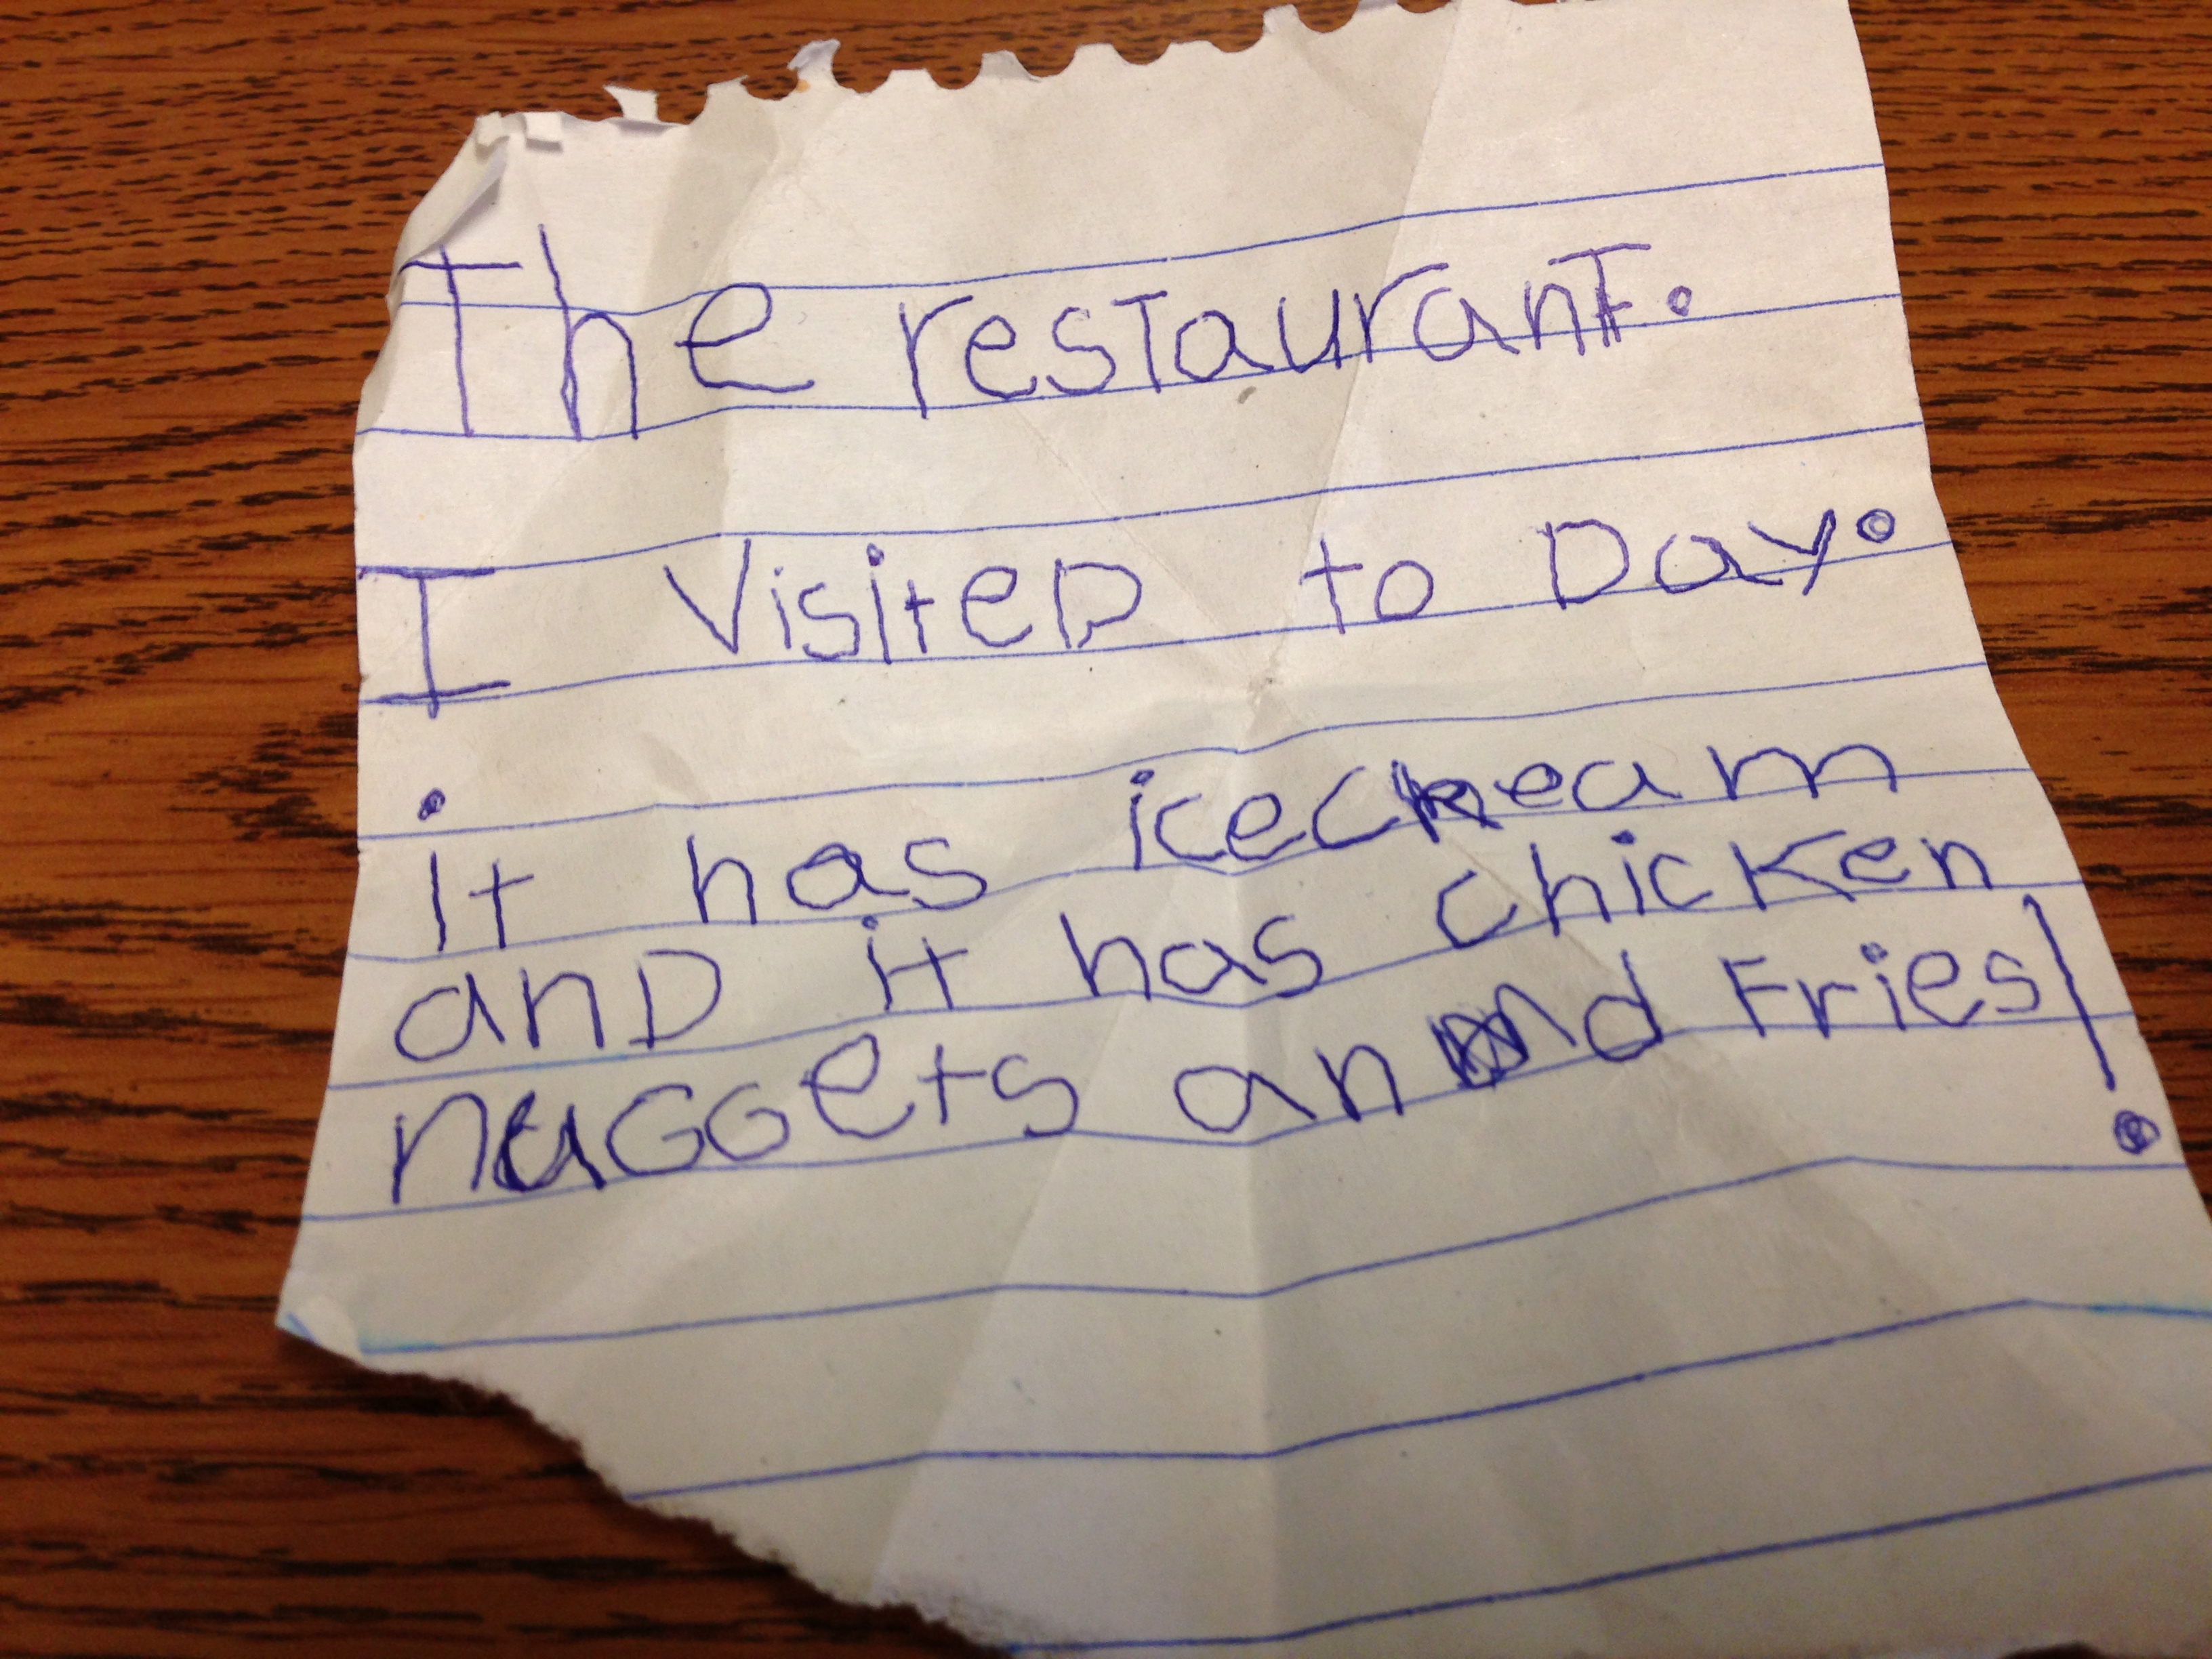 The restauranT.
I VisiteD to Day.
it has icecream
anD it has chicken
nuGGets annd Fries!